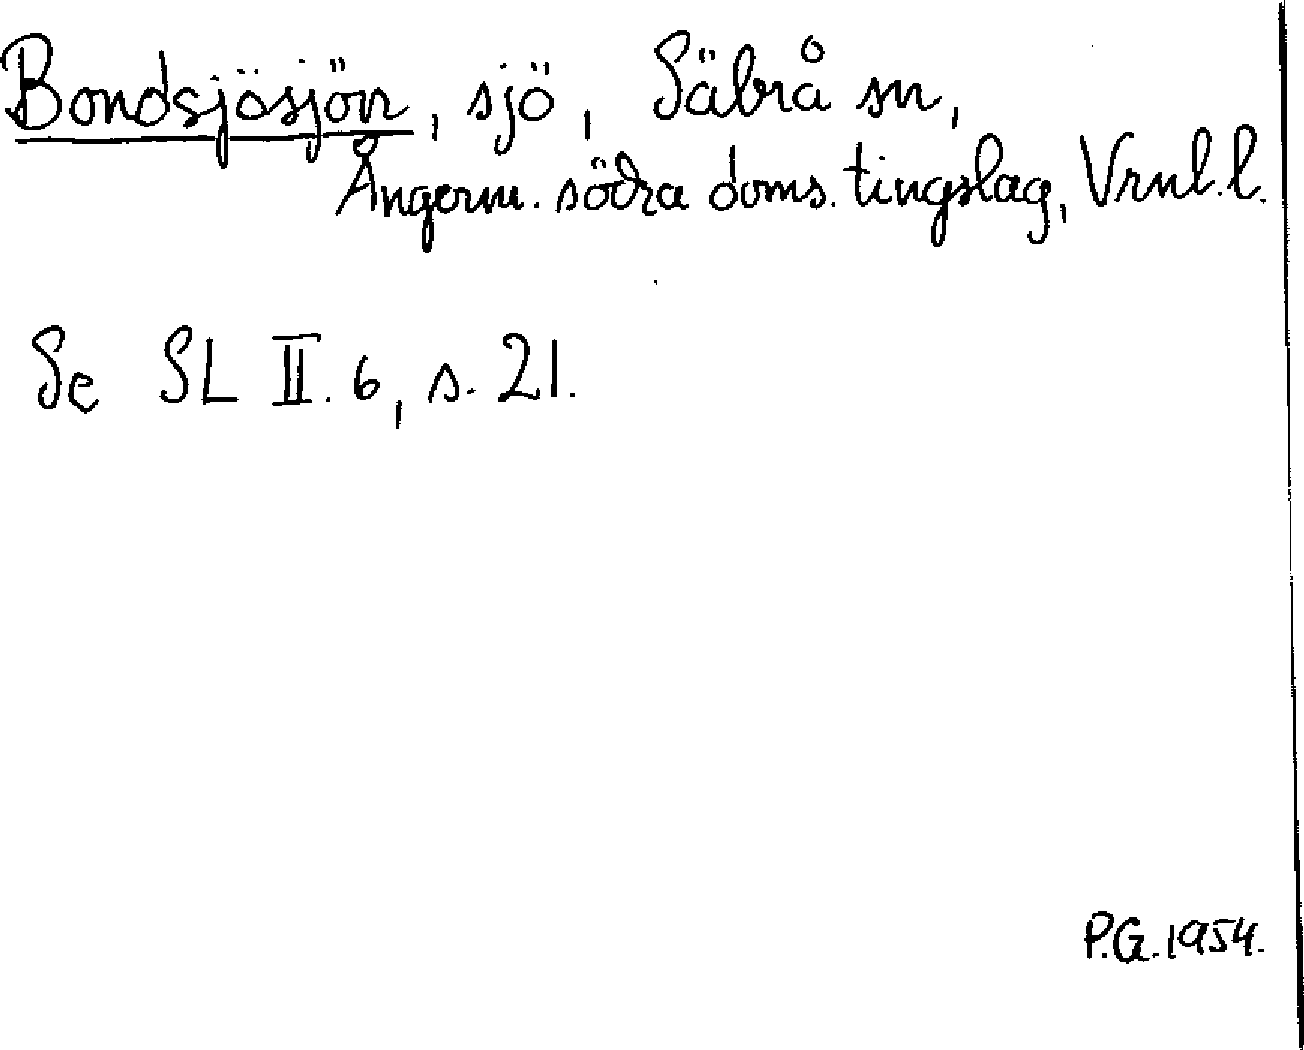 Bondsjösjön, sjö, Säbrå sn,
Ångerm. södra doms. tingslag, Vrnl. l.
Se SL II. 6, s. 21.
P.G. 1954.